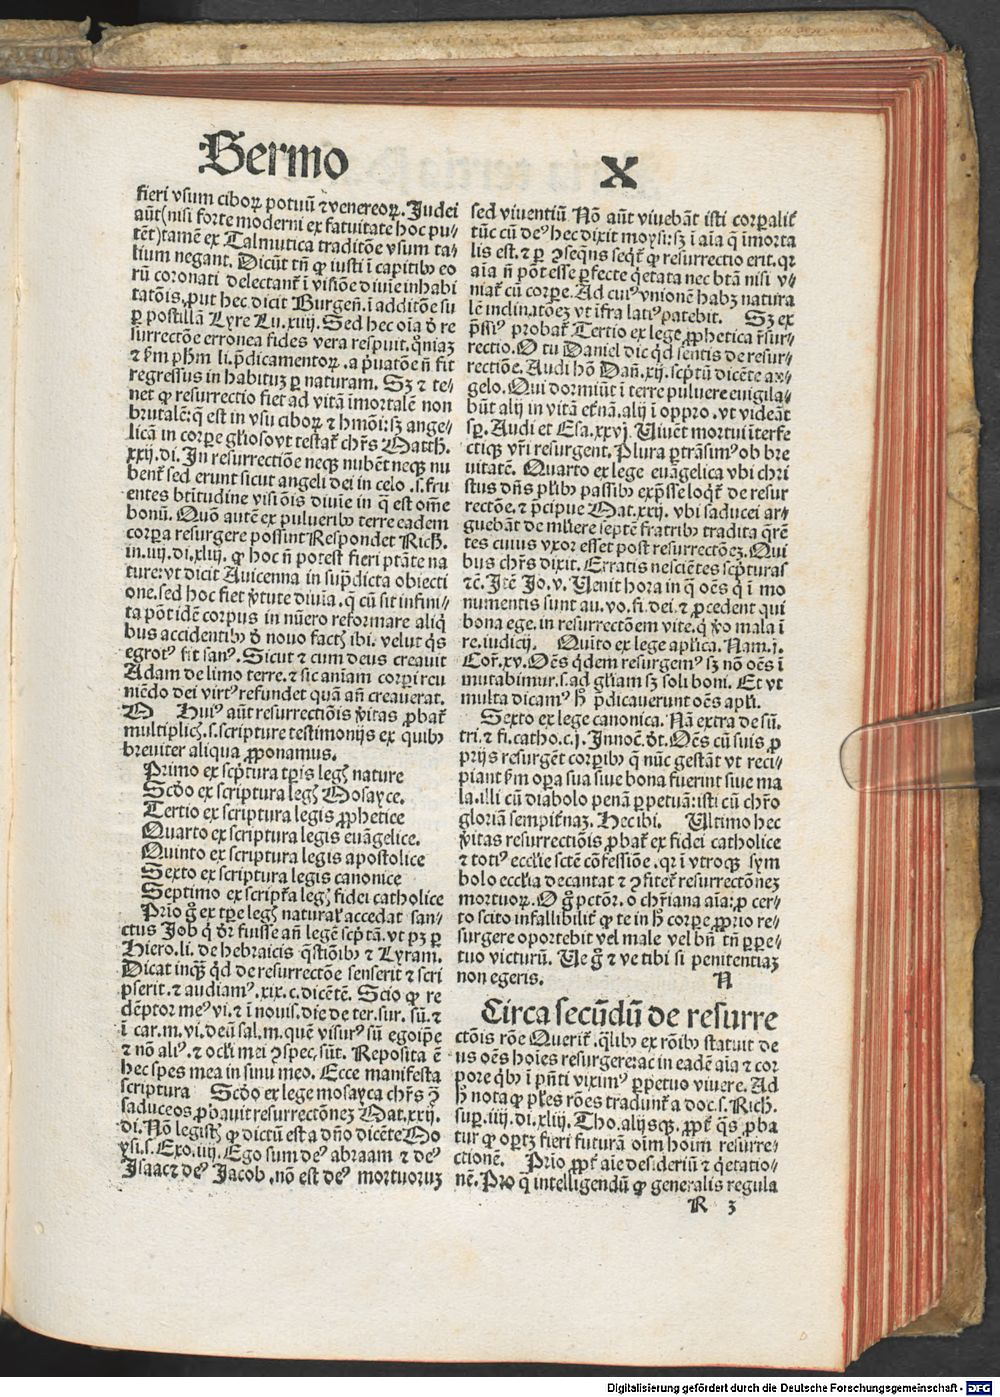 Sermo X
fieri vsum ciboꝝ potuū ⁊ venereoꝝ. Judei
aūt (nisi forte moderni ex fatuitate hoc pu⸗
tēt) tamē ex Talmutica traditōe vsum ta⸗
lium negant. Dicūt tn̄ ꝙ iusti ī capitibꝰ eo
rū coronati delectant̉ ī visiōe diuīe inhabi
tatōis, put hec dicit Burgeñ. ī additōe su
ꝑ postillā Lyre Lu. xiiij. Sed hec oīa ꝺ̉ re
surrectōe erronea fides vera respuit. qm̄iaꝫ
⁊ ẜm pħm li. p̄dicamentoꝝ. a p̉uatōe ñ fit
regressus in habituꝫ ꝑ naturam. Sꝫ ⁊ te⸗
net ꝙ resurrectio fiet ad vitā īmortalē non
brutalē: q̄ est in vsu ciboꝝ ⁊ hmōi: sꝫ ange⸗
licā in corꝑe gl̉ioso vt testat̉ chr̄s Matth.
xxij. di. In resurrectiōe neqꝫ nubēt neqꝫ nu
bent̉ sed erunt sicut angeli dei in celo .s. fru
entes btītudine visiōis diuīe in q̄ est om̄e
bonū. Quō autē ex pulueribꝰ terre eadem
corꝑa resurgere possint Respondet Rich.
in. iiij. di. xliij. ꝙ hoc ñ potest fieri ptāte na
ture: vt dicit Auicenna in sup̄dicta obiecti
one. sed hoc fiet v̉tute diuīa. q̄ cū sit infini⸗
ta pōt idē corpus in nūero reformare aliq̉
bus accidentibꝰ ꝺ̉ nouo fact̉ ibi. velut q̉s
egrotꝰ fit sanꝰ. Sicut ⁊ cum deus creauit
Adam de limo terre. ⁊ sic aniam corꝑi reu
niēdo dei virtꝰ refundet quā añ creauerat.
M Huiꝰ aūt resurrectiōis v̉itas ꝓbat̉
multiplicṫ. s. scripture testimonijs ex quibꝰ
breuiter aliqua ꝓponamus.
Primo ex scp̄tura tp̄is legꝭ nature
Scd̉o ex scriptura legꝭ Mosayce.
Tertio ex scriptura legis ꝓphetice
Quarto ex scriptura legis euāgelice.
Quinto ex scriptura legis apostolice
Sexto ex scriptura legis canonice
Septimo ex script̉a legꝭ fidei catholice
Prīo g̊ ex tꝑe legꝭ natural̉ accedat san⸗
ctus Job q̉ ꝺr̄ fuisse añ legē scp̄tā. vt pꝫ ꝑ
Hiero. li. de hebraicis q̄stiōibꝰ ⁊ Lyram.
Dicat inq̄ꝫ q̉d de resurrectōe senserit ⁊ scri
pserit. ⁊ audiamꝰ. xix. c. dicētē. Scio ꝙ re
dēptor meꝰ vi. ⁊ ī nouis. die de ter. sur. sū. ⁊
ī car. m. vi. deū sal. m. quē visurꝰ sū ego ip̄e
⁊ nō aliꝰ. ⁊ ocl̉i mei ꝯspec. sūt. Reposita ē
hec spes mea in sinu meo. Ecce manifesta
scriptura Scd̉o ex lege mosayca chr̄s ꝯ̄
saduceos ꝓbauit resurrectōneꝫ Mat. xxij.
di. Nō legistꝭ ꝙ dictū est a dn̄o dicēte Mo
ysi. s. Exo. iij. Ego sum deꝰ abraam ⁊ deꝰ
Isaac ⁊ deꝰ Jacob. nō est deꝰ mortuoruꝫ
sed viuentiū Nō aūt viuebāt isti corꝑalit̉
tūc cū deꝰ hec dixit moysi: sꝫ ī aīa q̄ īmorta
lis est. ⁊ ꝑ ꝯseq̄ns seq̉t̉ ꝙ resurrectio erit. qꝛ
aīa ñ pōt esse ꝑfecte q̉etata nec btā nisi v⸗
niat̉ cū corꝑe. Ad cuiꝰ vnionē habꝫ natura
lē inclinatōeꝫ vt īfra latiꝰ patebit. Sꝫ ex
p̄ssiꝰ probat̉ Tertio ex lege ꝓphetica r̄sur⸗
rectio. O tu Daniel dic q̉d sentis de resur⸗
rectiōe. Audi hō Dañ. xij. scp̄tū dicēte an⸗
gelo. Qui dormiūt ī terre puluere euigila⸗
būt alij in vitā et̄nā. alij ī oppro. vt videāt
sꝑ. Audi et Esa. xxvj. Viuēt mortui īterfe
ctiqꝫ vr̄i resurgent. Plura ꝑtrāsimꝰ ob bre
uitatē. Quarto ex lege euāgelica vbi chri
stus dn̄s pl̉ibꝰ passibꝰ exp̄sse loq̉t̉ de resur
rectōe. ⁊ p̄cipue Mat. xxij. vbi saducei ar⸗
guebāt de mlīere septē fratribꝰ tradita q̄rē
tes cuius vxor esset post resurrectōeꝫ. Qui
bus chr̄s dixit. Erratis nescīētes scp̄turas
⁊c̄. Itē Jo. v. Uenit hora in q̄ oēs q̉ ī mo
numentis sunt au. vo. fi. dei. ⁊ ꝓcedent qui
bona ege. in resurrectōem vite. q̉ v̉o mala ī
re. iudicij. Quīto ex lege apl̉ica. Nam. j.
Cor̄. xv. Oēs q̉dem resurgemꝰ sꝫ nō oēs ī
mutabimur. s. ad gl̉iam sꝫ soli boni. Et vt
multa dicamꝰ h̉ p̄dicauerunt oēs apl̉i.
Sexto ex lege canonica. Nā extra de sū.
tri. ⁊ fi. catho. c. j. Innoc̄. ꝺt̉. Oēs cū suis ꝓ
prijs resurgēt corꝑibꝰ q̄ nūc gestāt vt reci⸗
piant ẜm oꝑa sua siue bona fuerint siue ma
la. illi cū diabolo penā ꝑpetuā: isti cū chr̄o
gloriā sempit̉naꝫ. Hec ibi. Ultimo hec
v̉itas resurrectiōis ꝓbat̉ ex fidei catholice
⁊ totiꝰ eccl̉ie scte cōfessiōe. qꝛ ī vtroqꝫ sym
bolo eccl̉ia decantat ⁊ ꝯfitet̉ resurrectōneꝫ
mortuoꝝ. O g̊ pctōr. o chr̄iana aīa: ꝓ cer⸗
to scito infallibilit̉ ꝙ te in h̉ corꝑe ꝓprio re⸗
surgere oportebit vel male vel bñ tn̄ ꝑpe⸗
tuo victurū. Ue g̊ ⁊ ve tibi si penitentiaꝫ
non egeris. N
Circa secūdū de resurre
ctōis rōe Querit̉. q̉libꝰ ex rōibꝰ statuit de
us oēs hoīes resurgere: ac in eadē aīa ⁊ cor
pore q̉bꝰ ī pn̄ti viximꝰ ꝑpetuo viuere. Ad
h̉ nota ꝙ pl̉es rōes tradunt̉ a doc. s. Rich.
suꝑ. iiij. di. xliij. Tho. alijsqꝫ. ꝓpt̉ q̉s ꝓba
tur ꝙ oportꝫ fieri futurā oīm hoīm resurre⸗
ctionē. Prīo ꝓpt̉ aīe desideriū ⁊ q̉etatio⸗
nē. Pro q̄ intelligendū ꝙ generalis regula
R 3
Digitalisierung gefördert durch die Deutsche Forschungsgemeinschaft - DFG